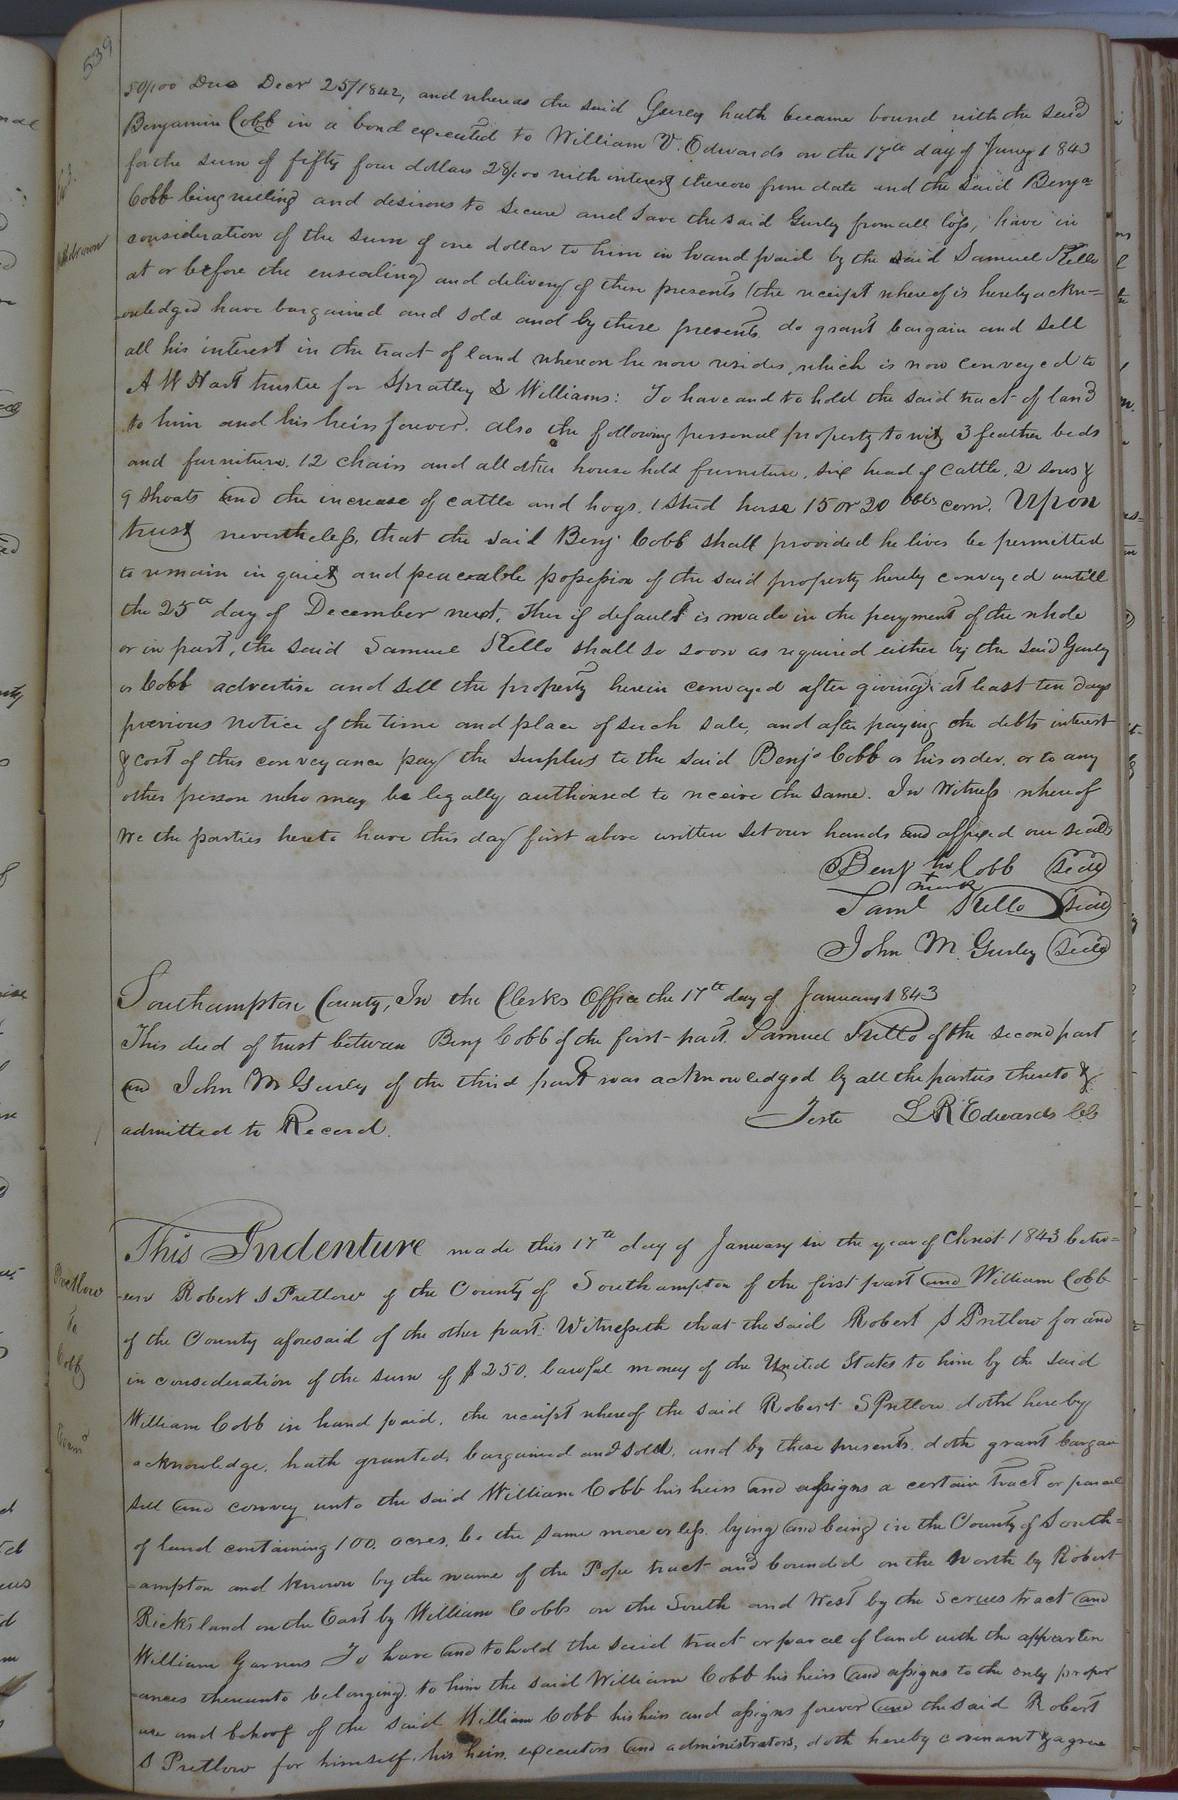 539
50/100 Due Decr 25/1842, and whereas the said Gurley hath became bound with the said
Benjamin Cobb in a bond executed to William V. Edwards on the 17th day of Jany 1843
for the sum of fifty four dollars 28/100 with interest thereon from date and the said Benja
Cobb being willing and desirous to secure and save the said Gurley from all loss, have in
consideration of the sum of one dollar to him in hand paid by the said Samuel Kello
at or before the ensealing and delivery of these presents (the receipt whereof is hereby ackn=
=owledged have bargained and sold and by these presents do grant bargain and sell
all his interest in the tract of land whereon he now resides, which is now conveyed to
A W Hart trustee for Spratley & Williams: To have and to hold the said tract of land
to him and his heirs forever. Also the following personal property to wit, 3 feather beds
and furniture. 12 chairs and all other house hold furniture, six head of cattle, 2 sows &
9 shoats and the increase of cattle and hogs. 1 stud horse 15 or 20 bbls corn. Upon
trust nevertheless, that the said Benj. Cobb shall provided he lives be permitted
to remain in quiet and peaceable possession of the said property hereby conveyed untill
the 25th day of December next. Then if default is made in the payment of the whole
or in part, the said Samuel Kello shall so soon as required either by the said Gurley
or Cobb advertise and sell the property herein conveyed after giving at least ten days
previous notice of the time and place of such sale, and after paying the debts interest
& cost of this conveyance pay the surplus to the said Benj. Cobb or his order, or to any
other person who may be legally authorised to receive the same. In Witness whereof
We the parties hereto have this day first above written set our hands and affixed our seals
Benj his Cobb (seal)
mark
Saml Kello (seal)
John M. Gurley (seal)
Southampton County, In the Clerks Office the 17th day of January 1843
This deed of trust between Benj Cobb of the first part, Samuel Kello of the second part
and John M Gurley of the third part was acknowledged by all the parties thereto &
admitted to Record.
Teste L R Edwards Clk
Pretlow
To
Cobb
This Indenture made this 17th day of January in the year of Christ 1843 betw=
=een Robert S Pretlow of the County of Southampton of the first part and William Cobb
of the County aforesaid of the other part: Witnesseth that the said Robert S Pretlow for and
in consideration of the sum of $250. lawful money of the United States to him by the said
William Cobb in hand paid, the receipt whereof the said Robert S Pretlow doth hereby
acknowledge, hath granted, bargained and sold, and by these presents doth grant bargain
sell and convey unto the said William Cobb his heirs and assigns a certain tract or parcel
of land containing 100. acres, be the same more or less lying and being in the County of South=
=ampton and known by the name of the Pope tract and bounded on the North by Robert
Ricks land on the East by William Cobbs on the South and West by the tract and
William Garners To have and to hold the said tract or parcel of land with the apperten
=ances thereunto belonging, to him the said William Cobb his heirs and assigns to the only proper
use and behoof of the said William Cobb his heirs and assigns forever and the said Robert
S Pretlow for himself, his heirs, executors and administrators, doth hereby covenant & agree